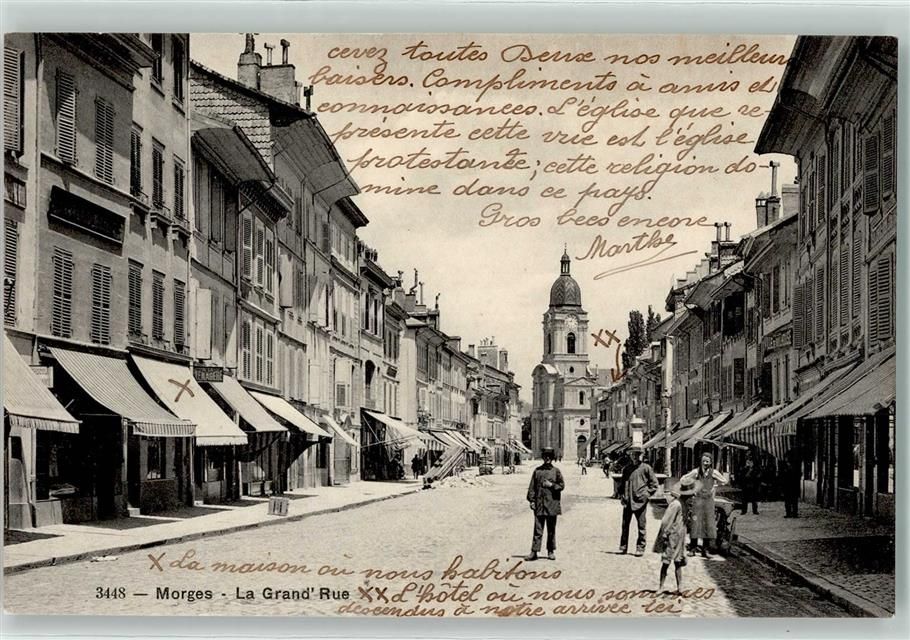 cevez toutes Deux nos meilleurs
baisers. Compliments à amis et
connaissances. L'église que re-
présente cette vue est l'église
protestante; cette religion do-
mine dans ce pays.
Gros becs encore
Marthe
XX
X
X La maison où nous habitons
3448 — Morges - La Grand' Rue XX L'hôtel où nous sommes
descendus à notre arrivée ici